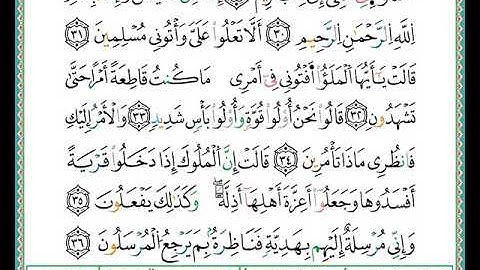 ٱللَّهِ ٱلرَّحْمَٰنِ ٱلرَّحِيمِ ٣٠ أَلَّا تَعْلُوا۟ عَلَىَّ وَأْتُونِى مُسْلِمِينَ ٣١
قَالَتْ يَٰٓأَيُّهَا ٱلْمَلَؤُا۟ أَفْتُونِى فِىٓ أَمْرِى مَا كُنتُ قَاطِعَةً أَمْرًا حَتَّىٰ
تَشْهَدُونِ ٣٢ قَالُوا۟ نَحْنُ أُو۟لُوا۟ قُوَّةٍ وَأُو۟لُوا۟ بَأْسٍ شَدِيدٍ ٣٣ وَٱلْأَمْرُ إِلَيْكِ
فَٱنظُرِى مَاذَا تَأْمُرِينَ ٣٤ قَالَتْ إِنَّ ٱلْمُلُوكَ إِذَا دَخَلُوا۟ قَرْيَةً
أَفْسَدُوهَا وَجَعَلُوٓا۟ أَعِزَّةَ أَهْلِهَآ أَذِلَّةً ۖ وَكَذَٰلِكَ يَفْعَلُونَ ٣٥
وَإِنِّى مُرْسِلَةٌ إِلَيْهِم بِهَدِيَّةٍ فَنَاظِرَةٌۢ بِمَ يَرْجِعُ ٱلْمُرْسَلُونَ ٣٦